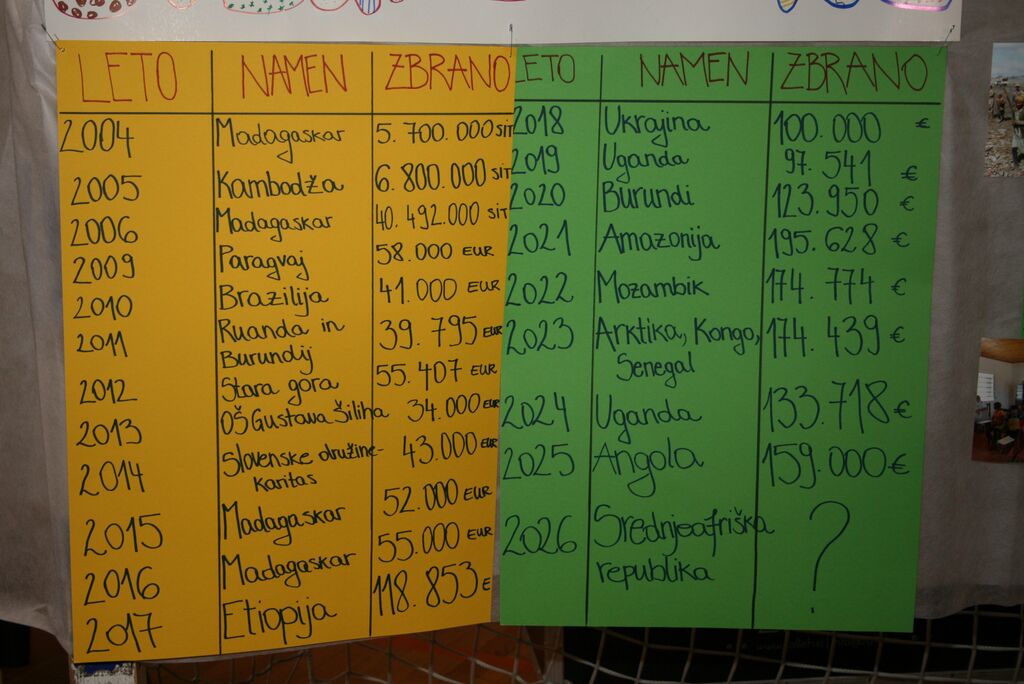 LETO NAMEN ZBRANO
2004 Madagaskar 5.700.000 SIT
2005 Kambodža 6.800.000 SIT
2006 Madagaskar 40.492.000 SIT
2009 Paragvaj 58.000 EUR
2010 Brazilija 41.000 EUR
2011 Ruanda in 39.795 EUR
Burundij
2012 Stara gora 55.407 EUR
2013 OŠ Gustava Šiliha 34.000 EUR
2014 Slovenske družine- 43.000 EUR
Karitas
2015 Madagaskar 52.000 EUR
2016 Madagaskar 55.000 EUR
2017 Etiopija 118.853 E
LETO NAMEN ZBRANO
2018 Ukrajina 100.000 €
2019 Uganda 97.541 €
2020 Burundi 123.950 €
2021 Amazonija 195.628 €
2022 Mozambik 174.774 €
2023 Arktika, Kongo, 174.439 €
Senegal
2024 Uganda 133.718 €
2025 Angola 159.000 €
2026 Srednjeafriška ?
republika